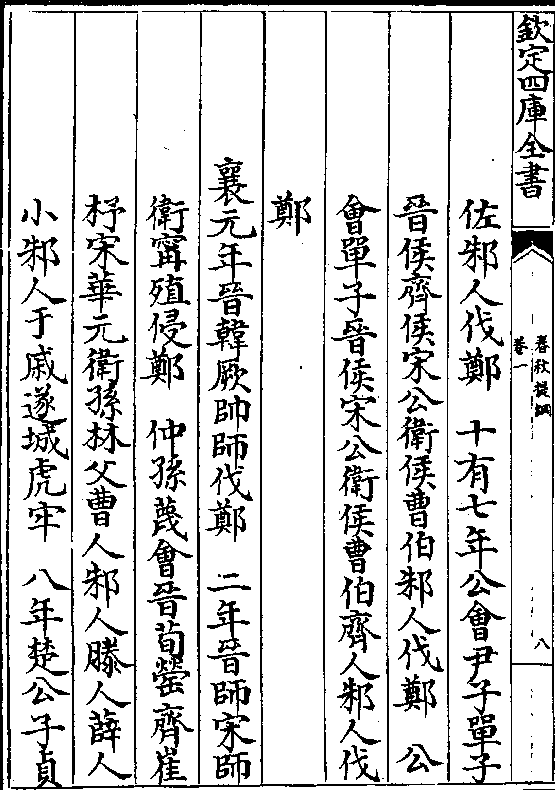 欽定四庫全書
春秋提綱
卷一
八
佐邾人伐鄭　十有七年公會尹子單子
晉侯齊侯宋公衛侯曹伯邾人伐鄭　公
會單子晉侯宋公衛侯曹伯齊人邾人伐
鄭
襄元年晉韓厥帥師伐鄭　二年晉師宋師
衛甯殖侵鄭　仲孫蔑會晉荀罃齊崔
杼宋華元衛孫林父曹人邾人滕人薛人
小邾人于戚遂城虎牢　八年楚公子貞